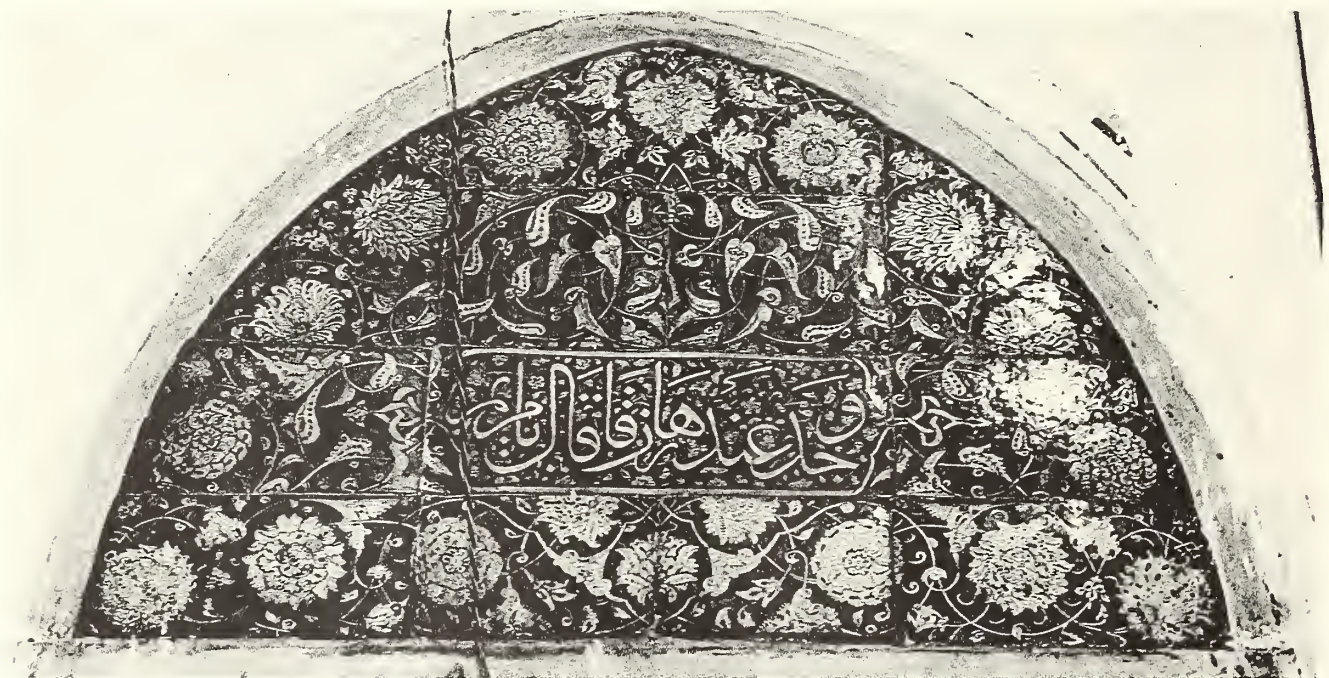 وجد عندها رزقا قال يا مريم